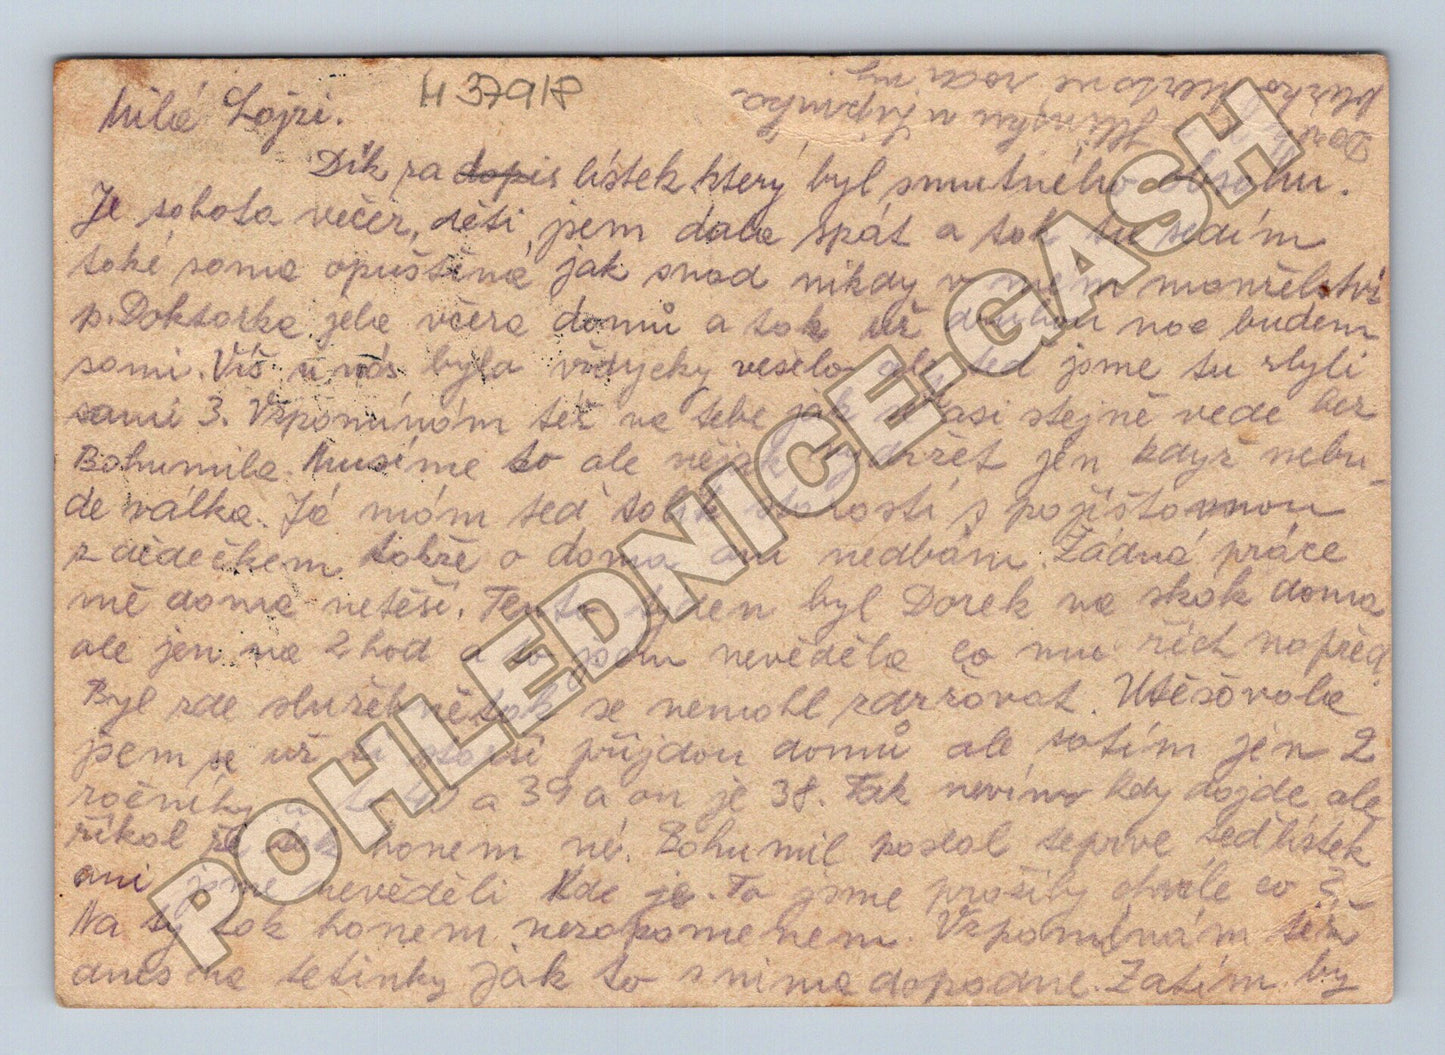 H 37918
Milá Lojzi.
Dík za dopis lístek, který byl smutného obsahu.
Je sobota večer, děti jsem dala spát a tak tu sedím
také sama opuštěna jak snad nikdy v mém manželství
p. Doktorka jela včera domů a tak už druhou noc budem
sami. Víš u nás bylo vždycky veselo ale teď jsme tu zbyli
sami 3. Vzpomínám též na tebe jak se ti asi stejně vede bez
Bohumila. Musíme to ale nějak vydržet jen když nebu
de válka. Já mám teď tolik starostí s pojišťovnou
z dědečkem takže o doma ani nedbám. Žádná práce
mě doma netěší. Tento týden byl Dorek na skok doma
ale jen na 2 hod a to jsem nevěděla co mu říct napřed.
Byl zde služebně tak se nemohl zdržovat. Utěšovala
jsem se už ti starší přijdou domů ale zatím jen 2
ročníky a to a 39 a on je 38. Tak nevím kdy dojde, ale
říkal že tak honem né. Bohumil poslal teprve teď lístek
ani jsme nevěděli kde je. To jsme prožily chvíle co?
Na ty tak honem nezapomenem. Vzpomínám též
dnes na tetinky jak to s nima dopadne. Zatím by
POHLEDNICE.GASH